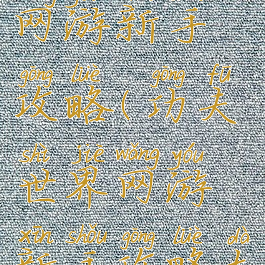 网游新手
gōng lüè gōng fū
攻略(功夫
shì jiè wǎng yóu
世界网游
xīn shǒu gōng lüè dà